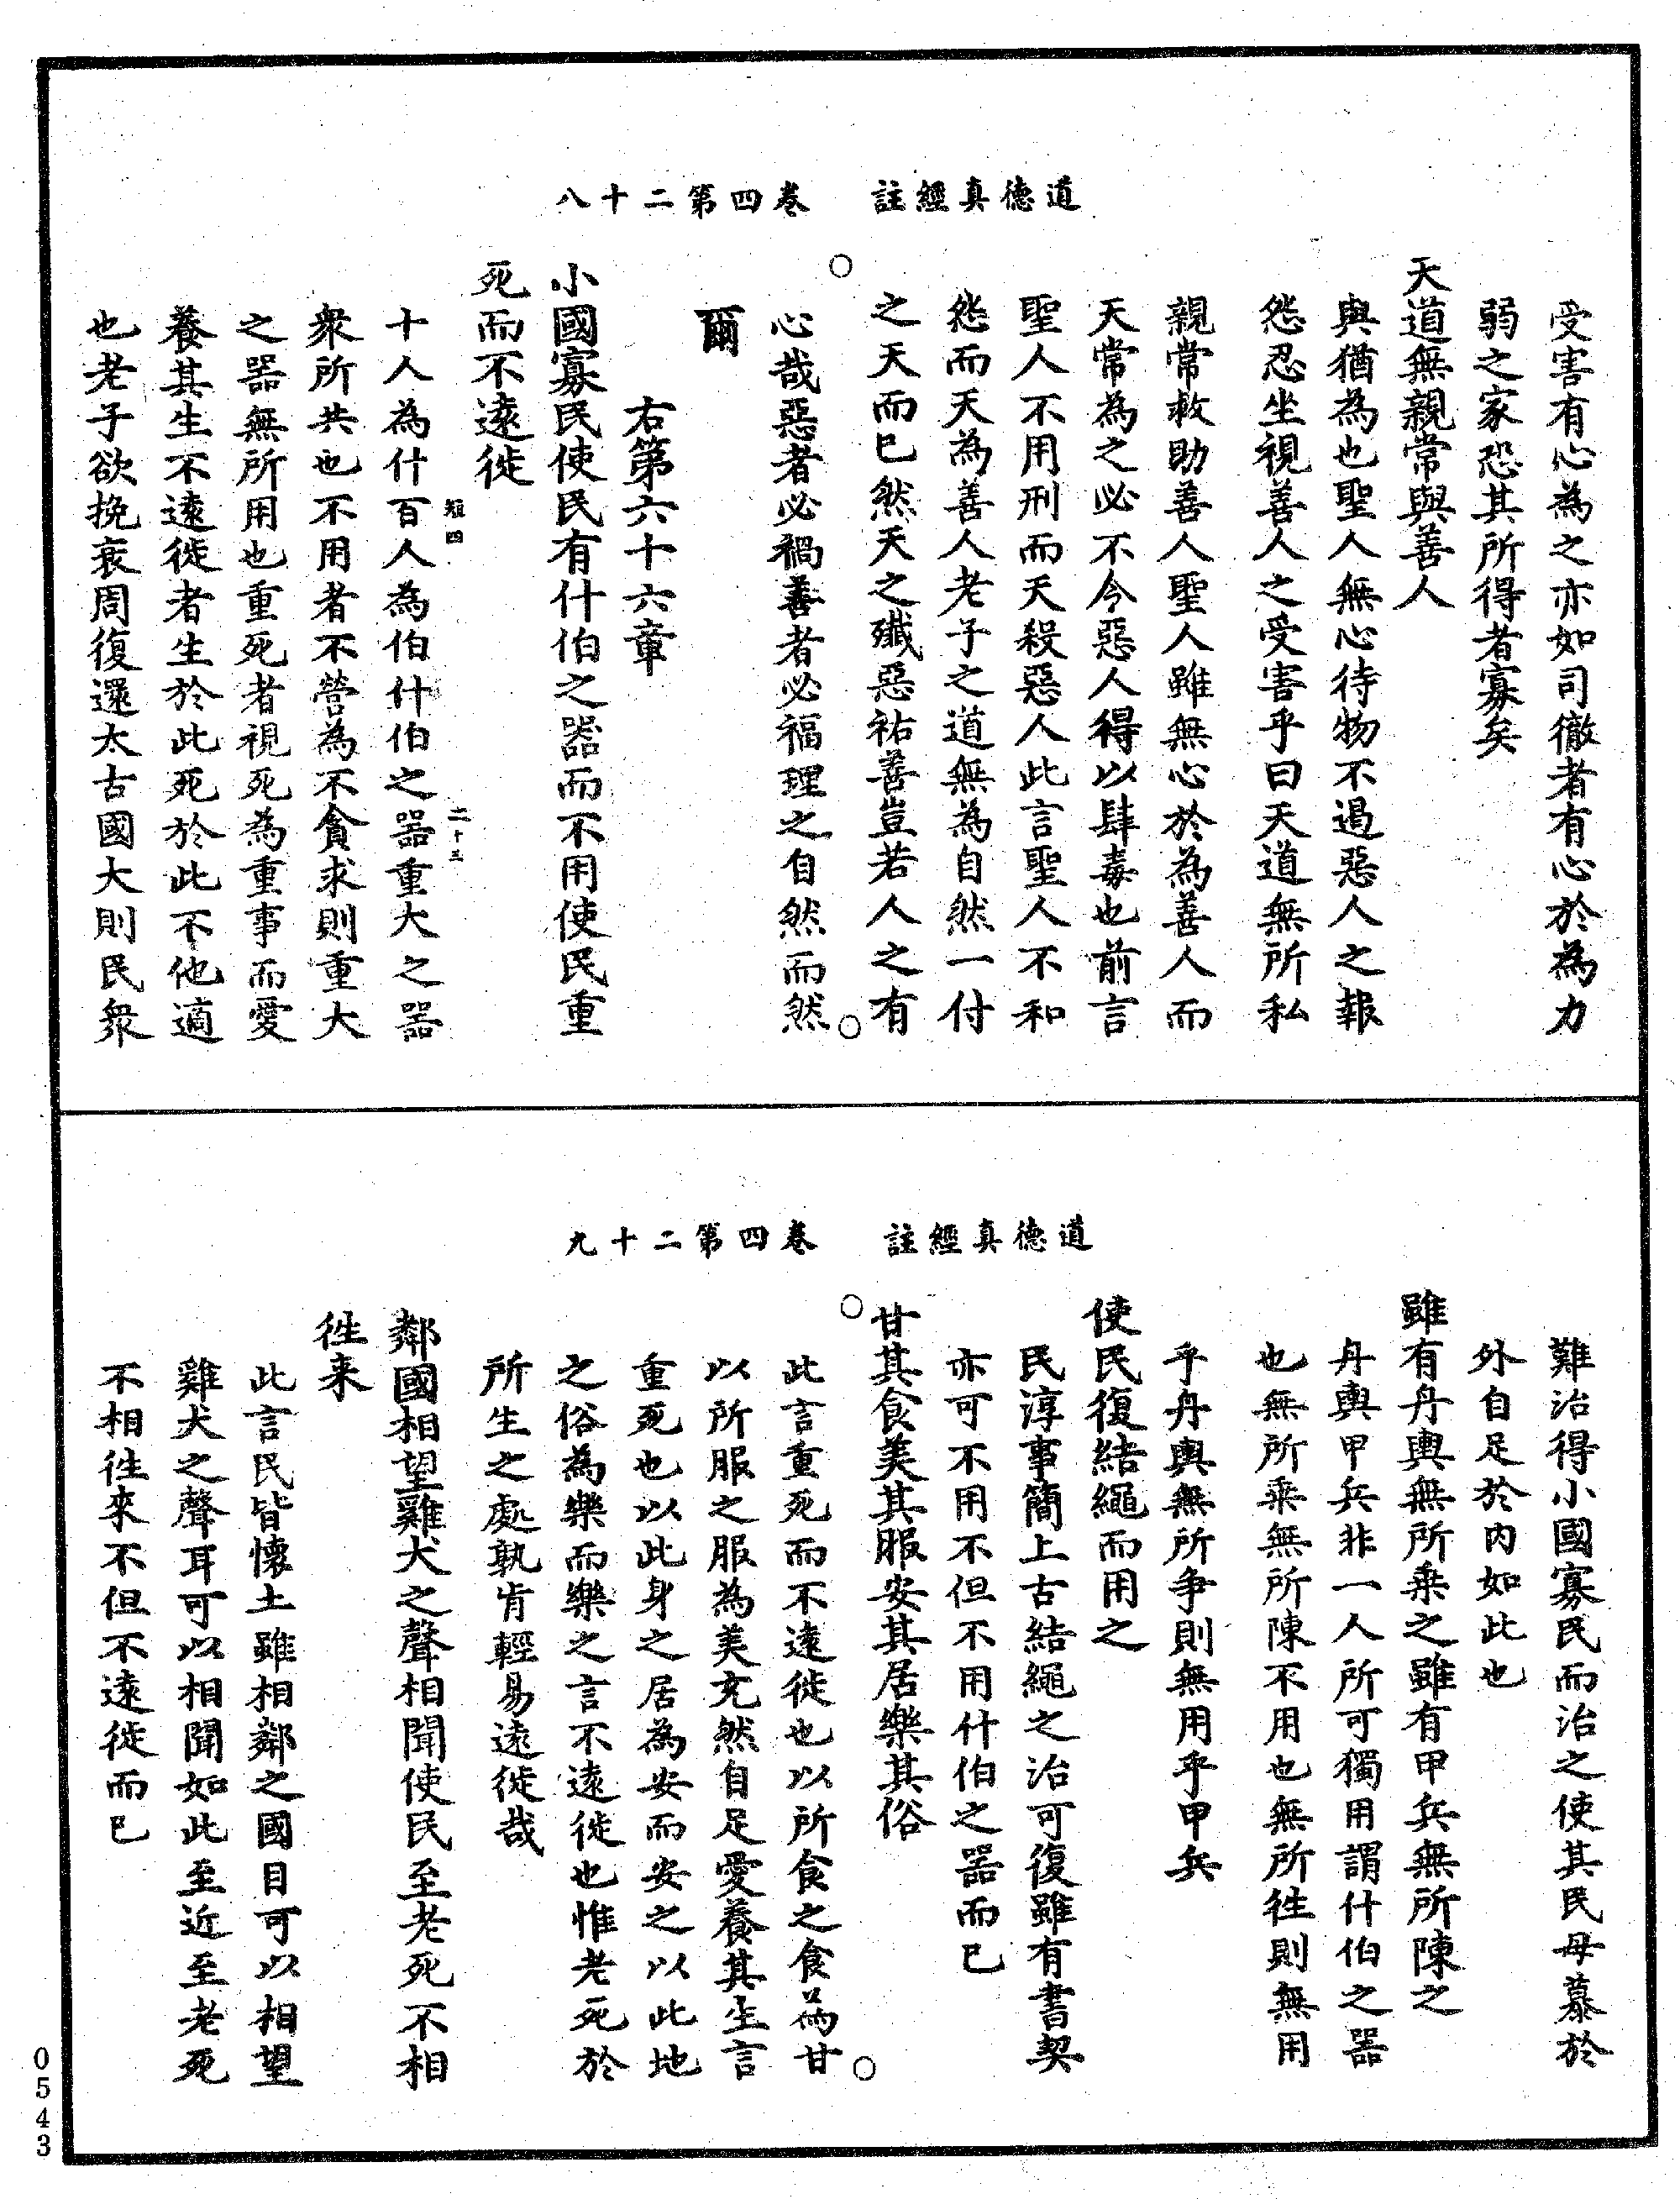 道德真經註　卷四第二十八
受害有心為之亦如司徹者有心於為力
弱之家恐其所得者寡矣
天道無親常與善人
與猶為也聖人無心待物不過惡人之報
怨忍坐視善人之受害乎曰天道無所私
親常救助善人聖人雖無心於為善人而
天常為之必不令惡人得以肆毒也前言
聖人不用刑而天殺惡人此言聖人不和
怨而天為善人老子之道無為自然一付
之天而已然天之殲惡祐善豈若人之有
心哉惡者必禍善者必福理之自然而然
爾
右第六十六章
小國寡民使民有什伯之器而不用使民重
死而不遠徙
短四　二十三
十人為什百人為伯什伯之器重大之器
衆所共也不用者不營為不貪求則重大
之器無所用也重死者視死為重事而愛
養其生不遠徙者生於此死於此不他適
也老子欲挽衰周復還太古國大則民衆
道德真經註　卷四第二十九
難治得小國寡民而治之使其民毋慕於
外自足於內如此也
雖有舟輿無所乘之雖有甲兵無所陳之
舟輿甲兵非一人所可獨用謂什伯之器
也無所乘無所陳不用也無所徃則無用
乎舟輿無所争則無用乎甲兵
使民復結繩而用之
民淳事簡上古結繩之治可復雖有書契
亦可不用不但不用什伯之器而已
甘其食美其服安其居樂其俗
此言重死而不遠徙也以所食之食為甘
以所服之服為美充然自足愛養其生言
重死也以此身之居為安而安之以此地
之俗為樂而樂之言不遠徙也惟老死於
所生之處孰肯輕易遠徙哉
鄰國相望雞犬之聲相聞使民至老死不相
徃来
此言民皆懷土雖相鄰之國目可以相望
雞犬之聲耳可以相聞如此至近至老死
不相徃來不但不遠徙而已
0543